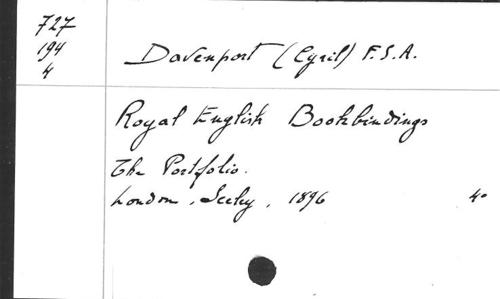 727
194
4
Davenport (Cyril) F.S.A.
Royal English Bookbindings
The Portfolio.
London, Seeley, 1896 4o